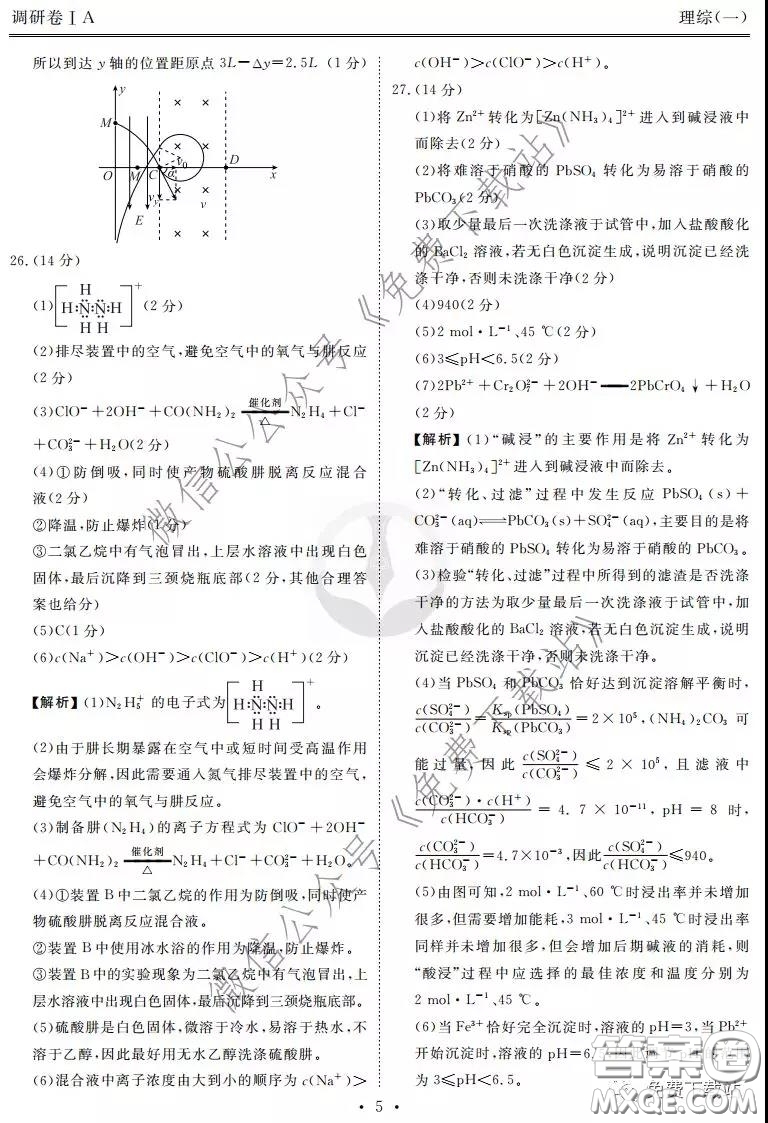 调研卷ⅠA
理综(一)
所以到达 y 轴的位置距原点 3L－Δy＝2.5L (1 分)
y
M
O
M
C
D
x
v₀
α
v_y
v
E
26.(14 分)
(1)[H:N̈:N̈:H H H H]⁺(2 分)
(2)排尽装置中的空气,避免空气中的氧气与肼反应
(2 分)
(3)ClO⁻＋2OH⁻＋CO(NH₂)₂ 催化剂 △ N₂H₄＋Cl⁻
＋CO₃²⁻＋H₂O(2 分)
(4)①防倒吸,同时使产物硫酸肼脱离反应混合
液(2 分)
②降温,防止爆炸(1 分)
③二氯乙烷中有气泡冒出,上层水溶液中出现白色
固体,最后沉降到三颈烧瓶底部(2 分,其他合理答
案也给分)
(5)C(1 分)
(6)c(Na⁺)＞c(OH⁻)＞c(ClO⁻)＞c(H⁺)(2 分)
【解析】(1)N₂H₅⁺ 的电子式为[H:N̈:N̈:H H H H]⁺。
(2)由于肼长期暴露在空气中或短时间受高温作用
会爆炸分解,因此需要通入氮气排尽装置中的空气,
避免空气中的氧气与肼反应。
(3)制备肼(N₂H₄)的离子方程式为 ClO⁻＋2OH⁻
＋CO(NH₂)₂ 催化剂 △ N₂H₄＋Cl⁻＋CO₃²⁻＋H₂O。
(4)①装置 B 中二氯乙烷的作用为防倒吸,同时使产
物硫酸肼脱离反应混合液。
②装置 B 中使用冰水浴的作用为降温,防止爆炸。
③装置 B 中的实验现象为二氯乙烷中有气泡冒出,上
层水溶液中出现白色固体,最后沉降到三颈烧瓶底部。
(5)硫酸肼是白色固体,微溶于冷水,易溶于热水,不
溶于乙醇,因此最好用无水乙醇洗涤硫酸肼。
(6)混合液中离子浓度由大到小的顺序为 c(Na⁺)＞
c(OH⁻)＞c(ClO⁻)＞c(H⁺)。
27.(14 分)
(1)将 Zn²⁺ 转化为[Zn(NH₃)₄]²⁺ 进入到碱浸液中
而除去(2 分)
(2)将难溶于硝酸的 PbSO₄ 转化为易溶于硝酸的
PbCO₃(2 分)
(3)取少量最后一次洗涤液于试管中,加入盐酸酸化
的 BaCl₂ 溶液,若无白色沉淀生成,说明沉淀已经洗
涤干净,否则未洗涤干净(2 分)
(4)940(2 分)
(5)2 mol·L⁻¹、45 ℃(2 分)
(6)3≤pH＜6.5(2 分)
(7)2Pb²⁺＋Cr₂O₇²⁻＋2OH⁻══2PbCrO₄↓＋H₂O
(2 分)
【解析】(1)“碱浸”的主要作用是将 Zn²⁺ 转化为
[Zn(NH₃)₄]²⁺进入到碱浸液中而除去。
(2)“转化、过滤”过程中发生反应 PbSO₄(s)＋
CO₃²⁻(aq)⇌PbCO₃(s)＋SO₄²⁻(aq),主要目的是将
难溶于硝酸的 PbSO₄ 转化为易溶于硝酸的 PbCO₃。
(3)检验“转化、过滤”过程中所得到的滤渣是否洗涤
干净的方法为取少量最后一次洗涤液于试管中,加
入盐酸酸化的 BaCl₂ 溶液,若无白色沉淀生成,说明
沉淀已经洗涤干净,否则未洗涤干净。
(4)当 PbSO₄ 和 PbCO₃ 恰好达到沉淀溶解平衡时,
c(SO₄²⁻)/c(CO₃²⁻)＝Ksp(PbSO₄)/Ksp(PbCO₃)＝2×10⁵,(NH₄)₂CO₃ 可
能过量,因此 c(SO₄²⁻)/c(CO₃²⁻) ≤ 2 × 10⁵,且滤液中
c(CO₃²⁻)·c(H⁺)/c(HCO₃⁻) ＝ 4.7 × 10⁻¹¹,pH ＝ 8 时,
c(CO₃²⁻)/c(HCO₃⁻)＝4.7×10⁻³,因此c(SO₄²⁻)/c(HCO₃⁻)≤940。
(5)由图可知,2 mol·L⁻¹、60 ℃时浸出率并未增加
很多,但需要增加能耗,3 mol·L⁻¹、45 ℃时浸出率
同样并未增加很多,但会增加后期碱液的消耗,则
“酸浸”过程中应选择的最佳浓度和温度分别为
2 mol·L⁻¹、45 ℃。
(6)当 Fe³⁺恰好完全沉淀时,溶液的 pH＝3,当 Pb²⁺
开始沉淀时,溶液的 pH＝6
为 3≤pH＜6.5。
· 5 ·
微信公众号《免费下载站》
微信公众号《免费下载站》
免费下载站
答案圈
MXQE.COM